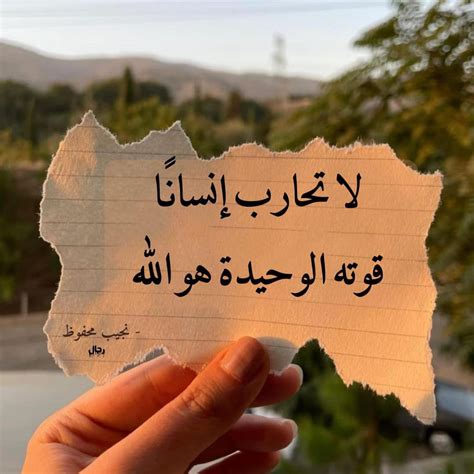 لا تحارب إنسانًا
قوته الوحيدة هو الله
- نجيب محفوظ
رجال